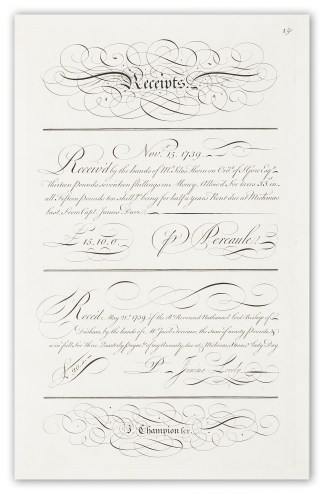 19
Receipts.
Nov. 15. 1739.
Receiv'd by the hands of Mr. Silas Thorn on Ordr. of Esqr.
Thirteen Pounds seventeen shillings in Money, Allow'd for taxes
all Fifteen Pounds ten shillgs. being for half a years Rent due at Michmas
last, from Capt. James
£ 15.10.0. P Percavle
Receiv'd May 21. 1739 of the Rt. Reverend Nathanael Lord Bishop of
Durham, by the hands of Mr. the sum of ninety Pounds &
is in full for Three Quarterly Paymts. of my Annuity, due at Michmas, Xtmas, Lady Day
£90. P James Lovely
J. Champion scr.